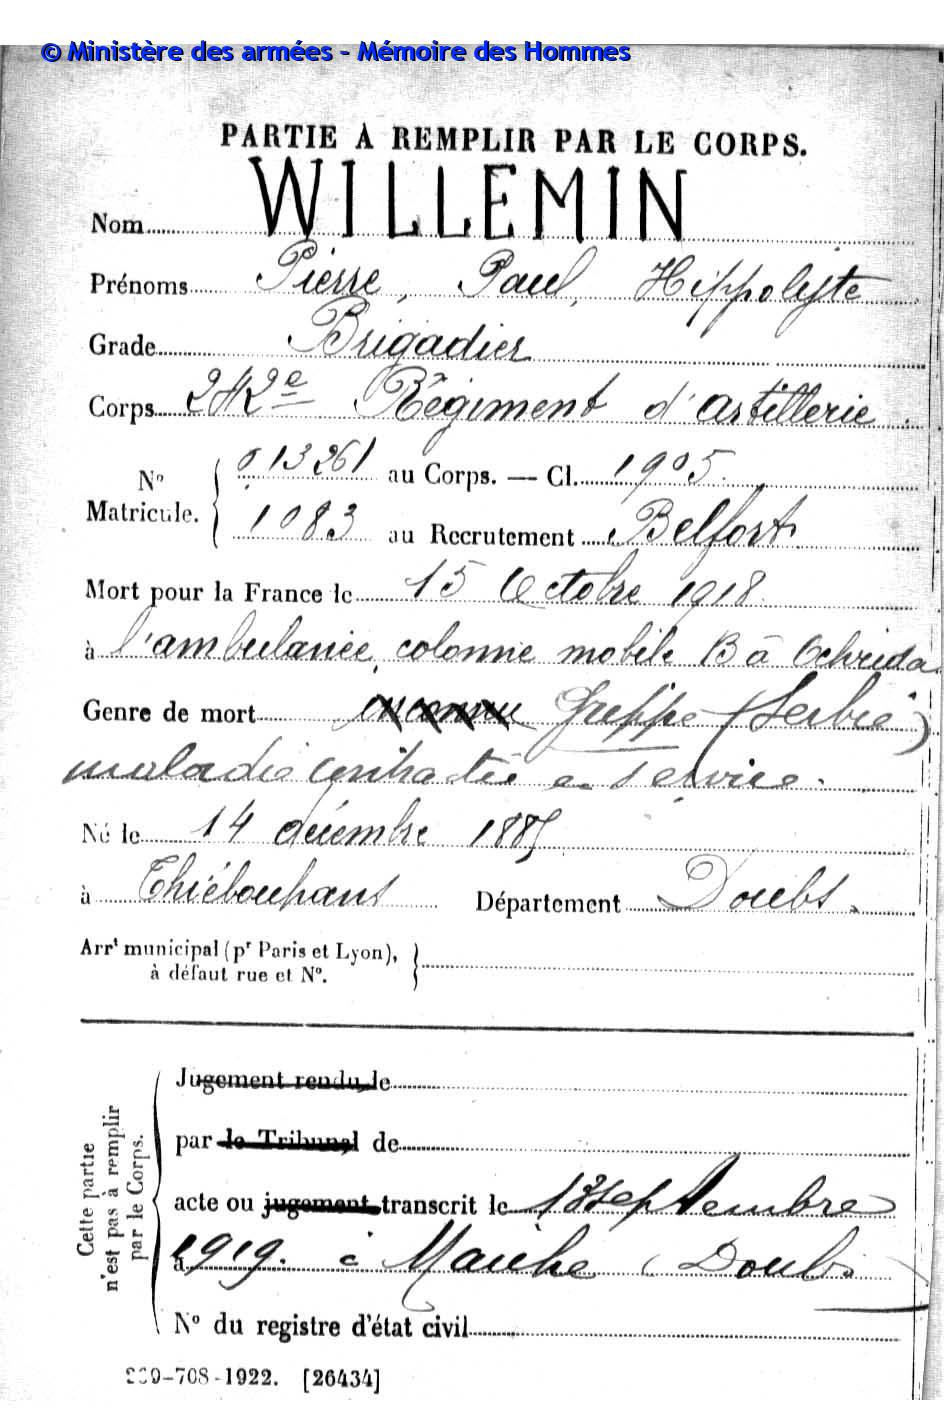 © Ministère des armées - Mémoire des Hommes
PARTIE À REMPLIR PAR LE CORPS.
Nom WILLEMIN
Prénoms Pierre, Paul, Hippolyte
Grade Brigadier
Corps 242e Régiment d'artillerie
No Matricule. { 013261 au Corps. — Cl. 1905
1083 au Recrutement Belfort
Mort pour la France le 15 Octobre 1918
à l'ambulance colonne mobile B à Ochrida
Genre de mort inconnu Grippe (Serbie)
maladie contractée en service.
Né le 14 décembre 1885
à Thiébouhans Département Doubs.
Arrt municipal (pr Paris et Lyon),
à défaut rue et No.
Cette partie n'est pas à remplir par le Corps.
Jugement rendu le
par le Tribunal de
acte ou jugement transcrit le 13 septembre
à 1919. à Maîche (Doubs
No du registre d'état civil
-708-1922. [26434]